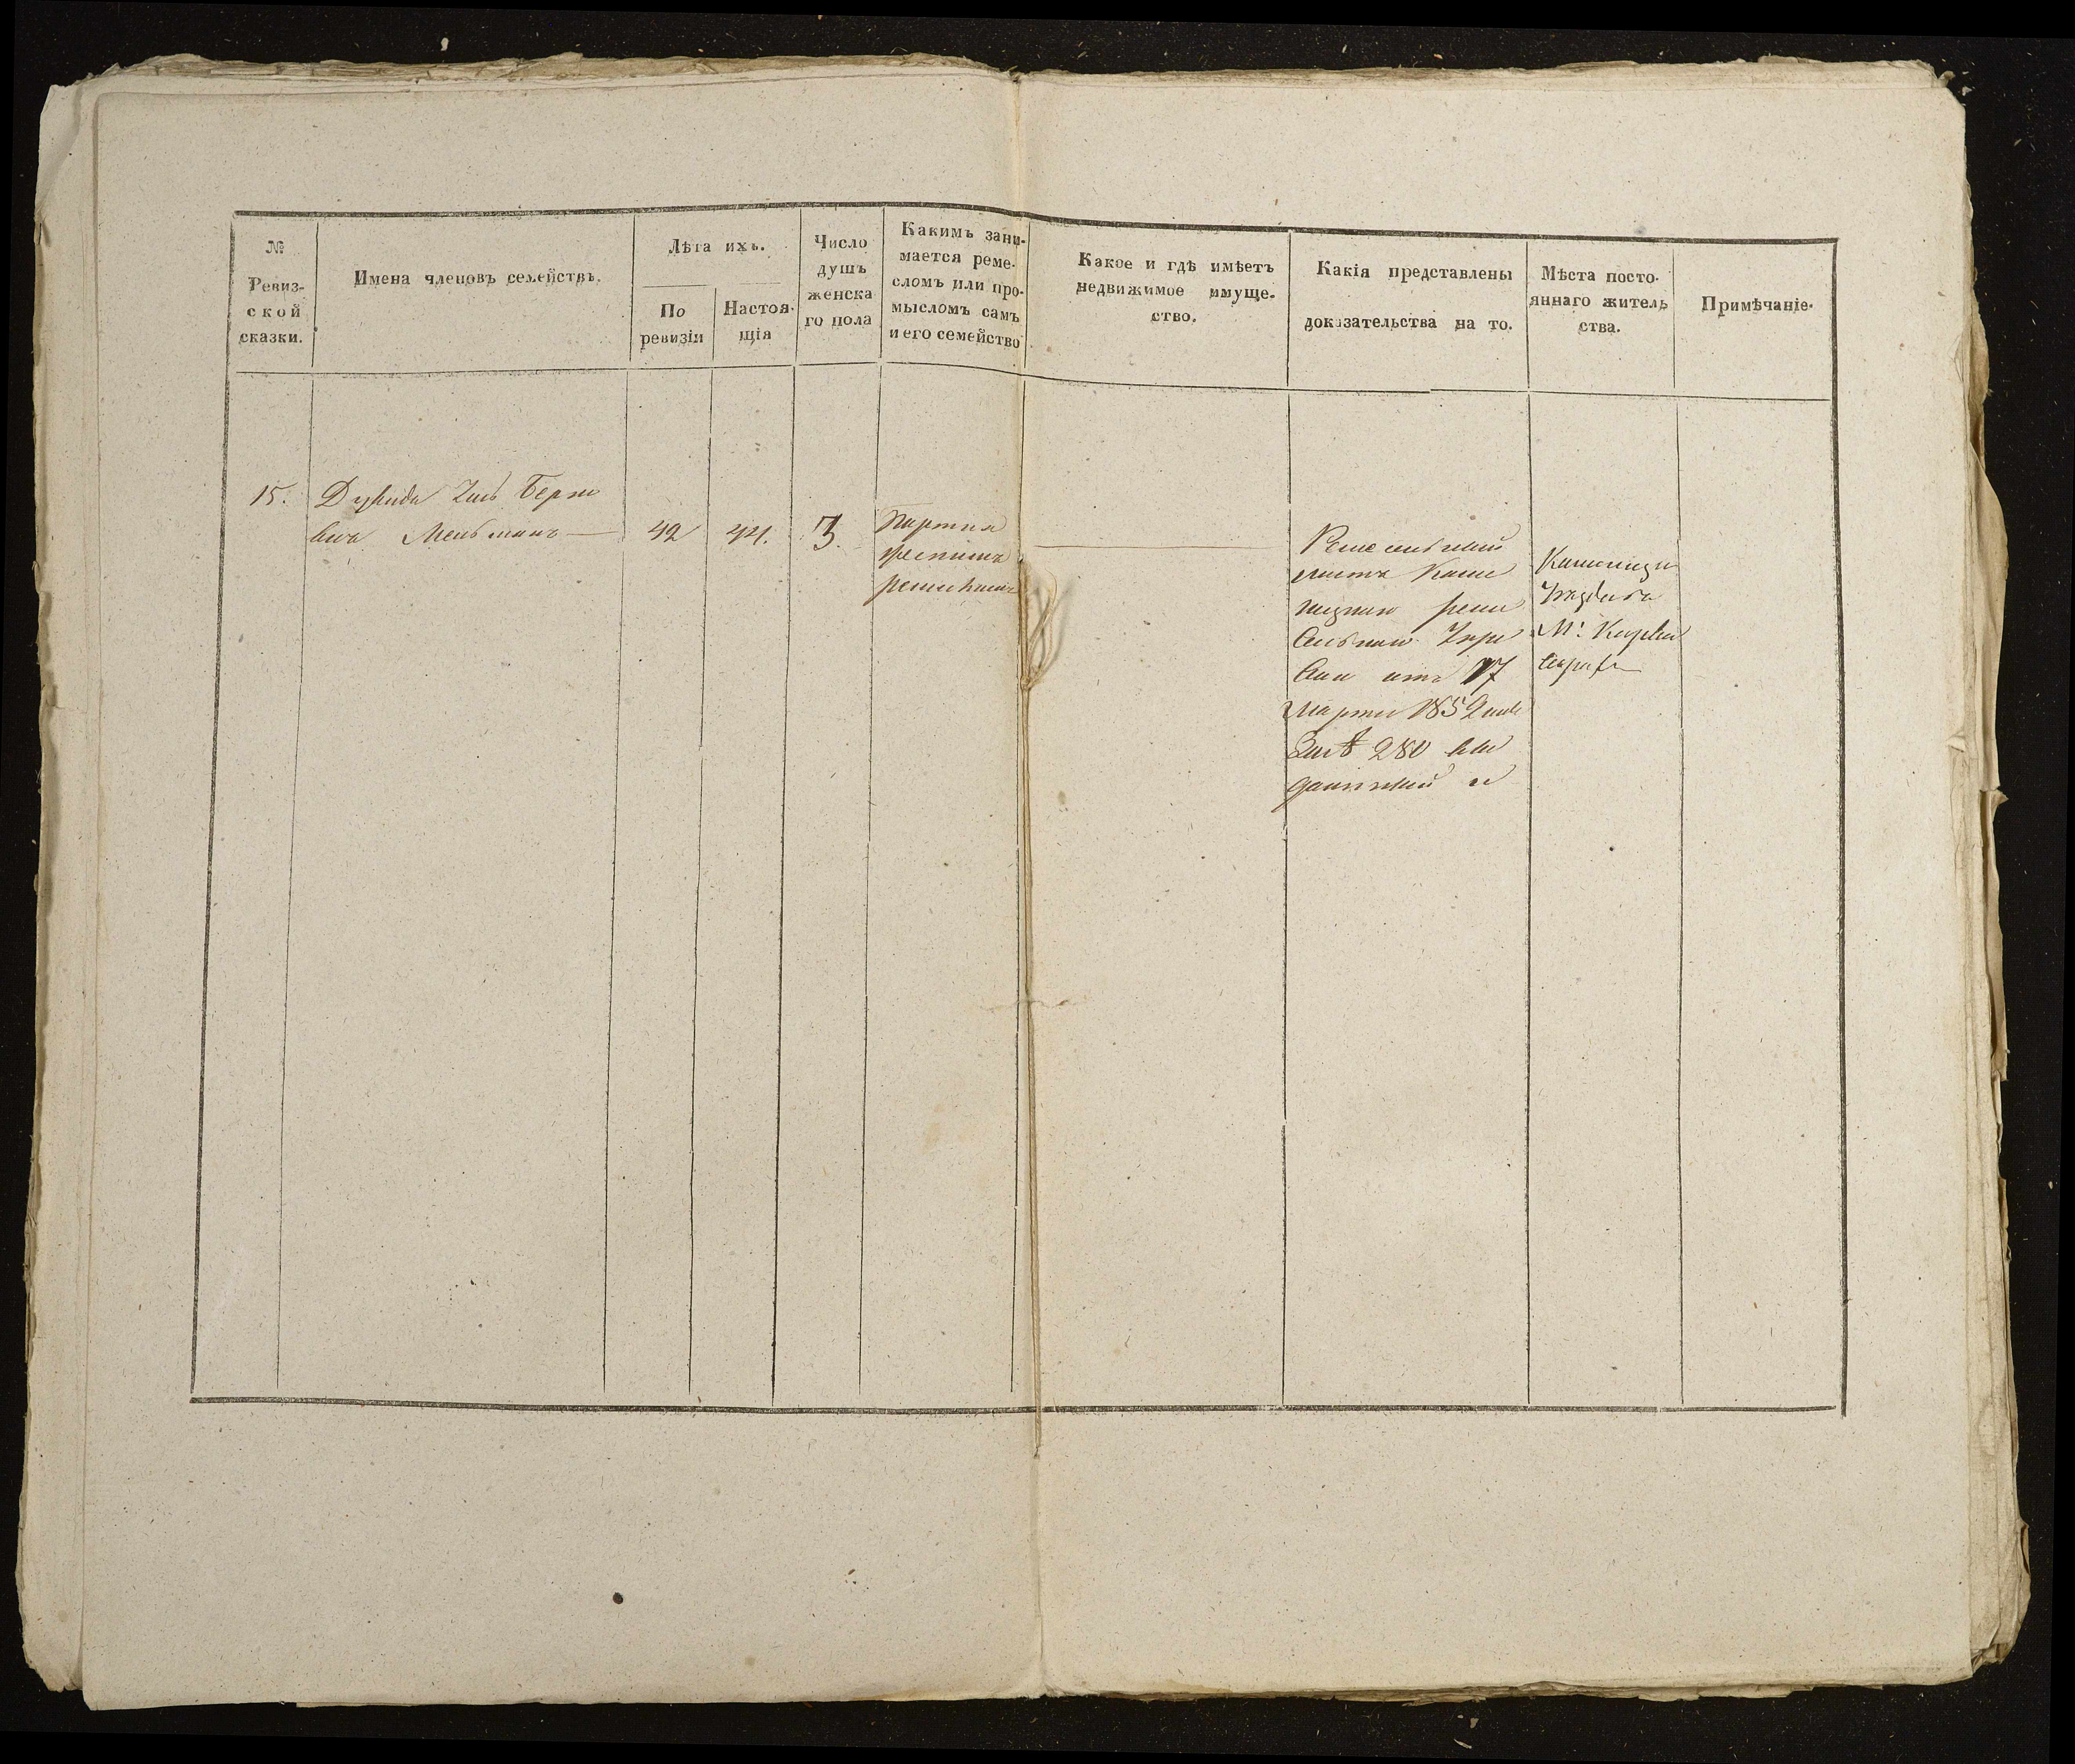 №
Ревиз-
ской
сказки.
Имена членовъ семействъ.
Лѣта ихъ.
По
ревизіи
Настоя-
щія
Число
душъ
женска
го пола
Какимъ зани-
мается реме-
сломъ или про-
мысломъ самъ
и его семейство
Какое и гдѣ имѣетъ
недвижимое имуще-
ство.
Какія представлены
доказательства на то.
Мѣста посто-
яннаго житель
ства.
Примѣчаніе.
15.
Берко
42
44.
3.
ремесломъ
Ремесленный
листъ Каме
ницкой реме
сленной Упра
вы отъ 17
марта 1852 года
за № 280 вы
данный и
Каменецк
Уѣзда
М: